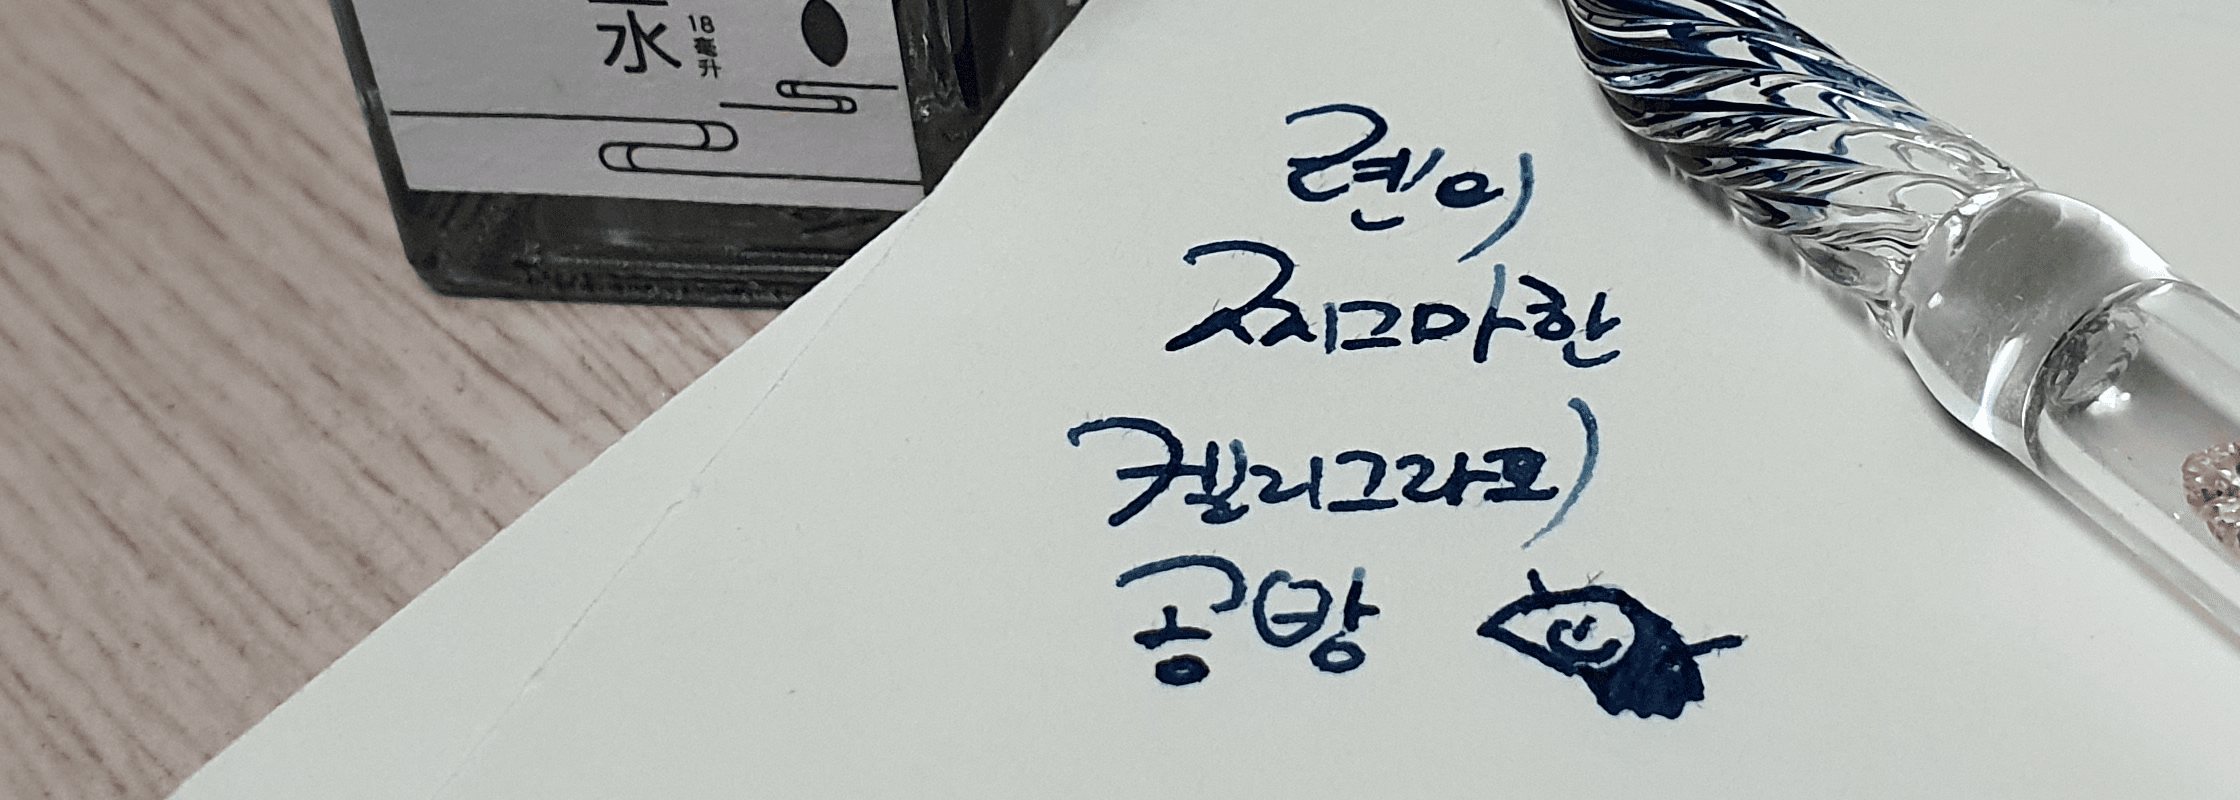 水
18
毫
升
렌이
쩨그마한
켈리그라피
공방